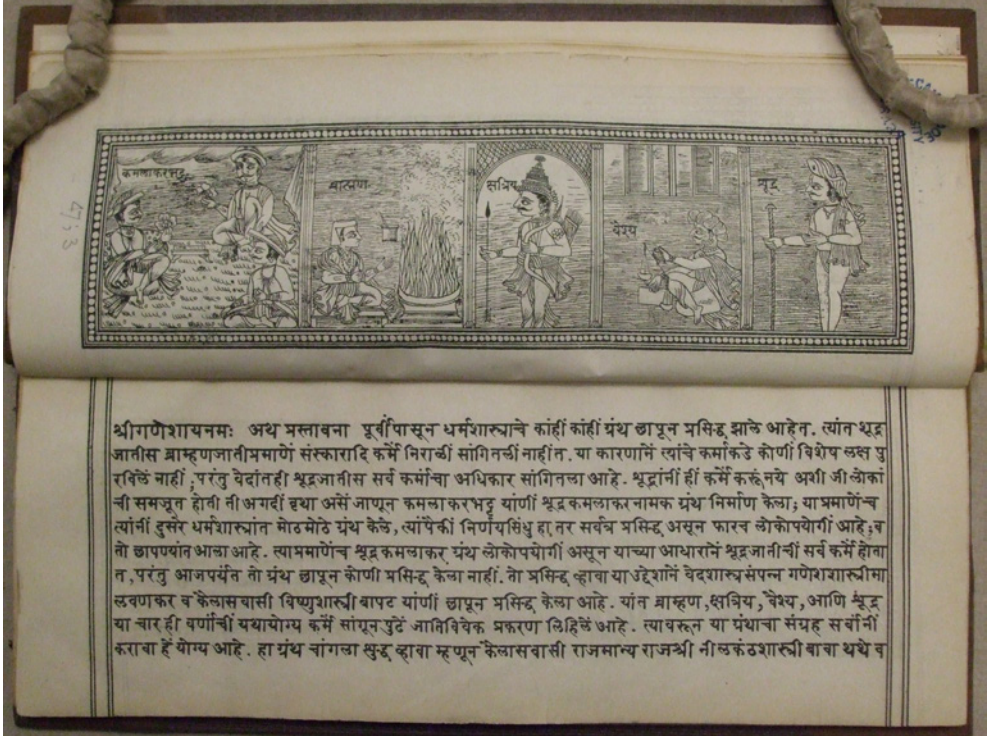 कमलाकरभट्ट
ब्राम्हण
क्षत्रिय
वैश्य
शूद्र
श्रीगणेशायनमः अथ प्रस्तावना पूर्वीपासून धर्मशास्त्राचे कांहीं कांहीं ग्रंथ छापून प्रसिद्ध झाले आहेत. त्यांत शूद्र
जातीस ब्राम्हणजातीप्रमाणें संस्कारादि कर्में निराळीं सांगितलीं नाहींत. या कारणानें त्यांचे कर्माकडे कोणीं विशेष लक्ष पु
रविलें नाहीं, परंतु वेदांतही शूद्रजातीस सर्व कर्माचा अधिकार सांगितला आहे. शूद्रांनीं हीं कर्में करूंनये अशी जी लोकां
ची समजूत होती ती अगदीं वृथा असें जाणून कमलाकरभट्ट यांणीं शूद्रकमलाकरनामक ग्रंथ निर्माण केला; याप्रमाणेंच
त्यांनीं दुसरे धर्मशास्त्रांत मोठमोठे ग्रंथ केले, त्यांपैकीं निर्णयसिंधु हा तर सर्वत्र प्रसिद्ध असून फारच लोकोपयोगीं आहे; व
तो छापण्यांत आला आहे. त्याप्रमाणेंच शूद्रकमलाकर ग्रंथ लोकोपयोगीं असून याच्या आधारानें शूद्रजातीचीं सर्व कर्में होता
त, परंतु आजपर्यंत तो ग्रंथ छापून कोणी प्रसिद्ध केला नाहीं. तो प्रसिद्ध व्हावा या उद्देशानें वेदशास्त्रसंपन्न गणेशशास्त्री मा
लवणकर व कैलासवासी विष्णुशास्त्री बापट यांणीं छापून प्रसिद्ध केला आहे. यांत ब्राम्हण, क्षत्रिय, वैश्य, आणि शूद्र
या चारही वर्णांचीं यथायोग्य कर्में सांगून पुढें जातिविवेक प्रकरण लिहिलें आहे. त्यावरून या ग्रंथाचा संग्रह सर्वांनीं
करावा हें योग्य आहे. हा ग्रंथ चांगला शुद्ध व्हावा म्हणून कैलासवासी राजमान्य राजश्री नीलकंठशास्त्री बाबा थथे व